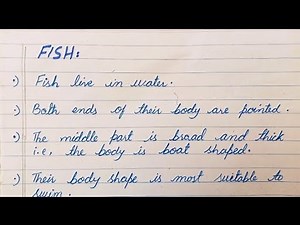 FISH:
·) Fish live in water.
·) Both ends of their body are pointed.
·) The middle part is broad and thick
i.e, the body is boat shaped.
·) Their body shape is most suitable to
swim.